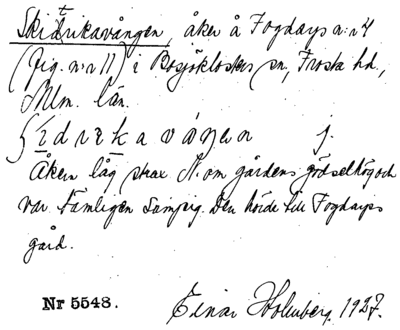 Skidtrikavången, åker å Fogdarps n:r 4
(fig. n:r 11) i Bosjökloster sn, Frosta hd,
Mlm. län.
Åkern låg strax N. om gårdens gödselhög och
var tämligen sumpig. Den hörde till Fogdarps
gård.
Nr 5548. Einar Holmberg. 1927.